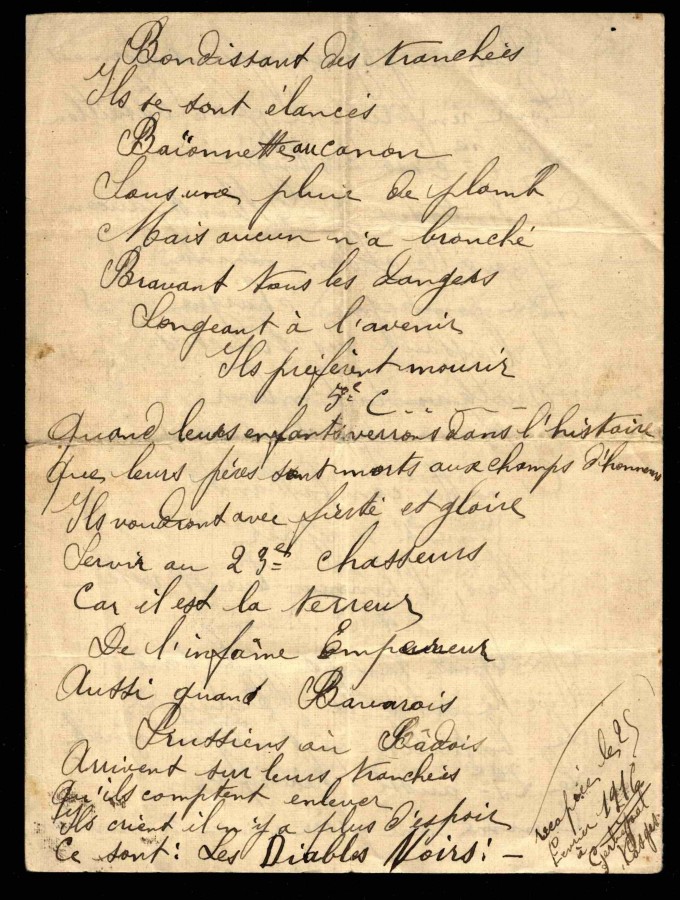 Bondissant des tranchées
Ils se sont élancés
Baïonnette au canon
Sous une pluie de plomb
Mais aucun n'a bronché
Bravant tous les dangers
Songeant à l'avenir
Ils préfèrent mourir
5e C
Quand leurs enfants verrons dans l'histoire
Que leurs pères sont morts aux champs d'honneurs
Ils voudront avec fierté et gloire
Servir au 23e chasseurs
Car il est la terreur
De l'infâme Empereur
Aussi quand Bavarois
Prussiens ou Bâdois
Arrivent sur leurs tranchées
Qu'ils comptent enlever
Ils crient il n'y a plus d'espoir
Ce sont: Les Diables Noirs! –
recopiées le 25
Fevrier 1916
à